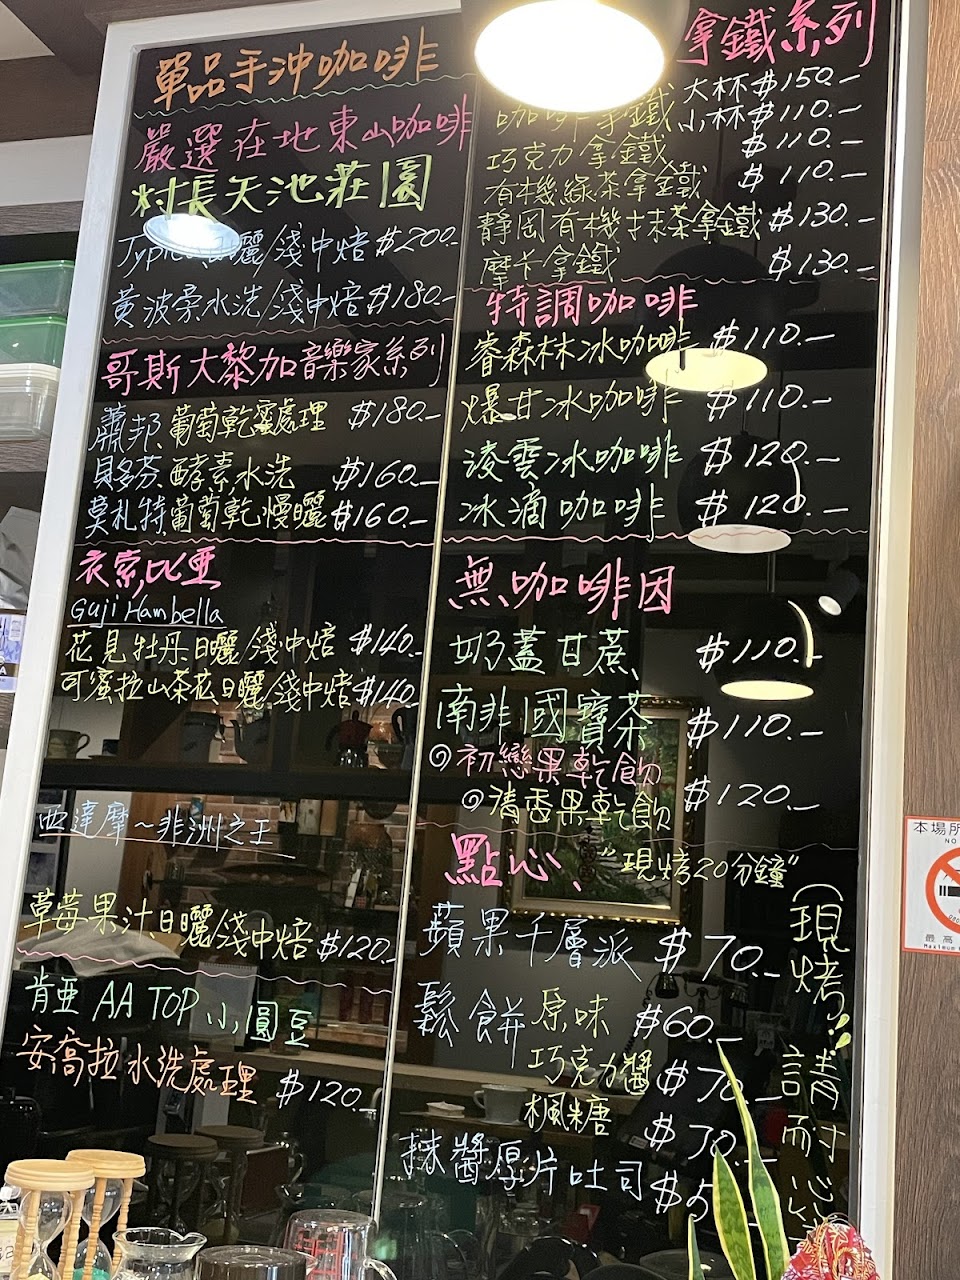 單品手沖咖啡
嚴選在地東山咖啡
村長天池莊園
Typica日曬/淺中焙 $200.-
黃波桑水洗/淺中焙 $180.-
哥斯大黎加音樂家系列
蕭邦.葡萄乾蜜處理 $180.-
貝多芬.酵素水洗 $160.-
莫札特.葡萄乾慢曬 $160.-
衣索比亞
Guji Hambella
花見牡丹.日曬/淺中焙 $140.-
可蜜拉山茶花日曬/淺中焙 $140.-
西達摩~非洲之王
草莓果汁.日曬/淺中焙 $120.-
肯亞 AA TOP 小圓豆
安喬拉水洗處理 $120.-
拿鐵系列
咖啡拿鐵 大杯$150.-
小杯$110.-
巧克力拿鐵 $110.-
有機綠茶拿鐵 $110.-
靜岡有機抹茶拿鐵 $130.-
摩卡拿鐵 $130.-
特調咖啡
睿森林冰咖啡 $110.-
爆甘冰咖啡 $110.-
凌雲冰咖啡 $120.-
冰滴咖啡 $120.-
無咖啡因
奶蓋甘蔗 $110.-
南非國寶茶 $110.-
初戀果乾飲
清香果乾飲 $120.-
點心、"現烤20分鐘"
蘋果千層派 $70.-
鬆餅 原味 $60.-
巧克力醬 $70.-
楓糖 $70.-
抹醬厚片吐司 $5
(現烤!請耐心
本場所
NO
最高
Maximum